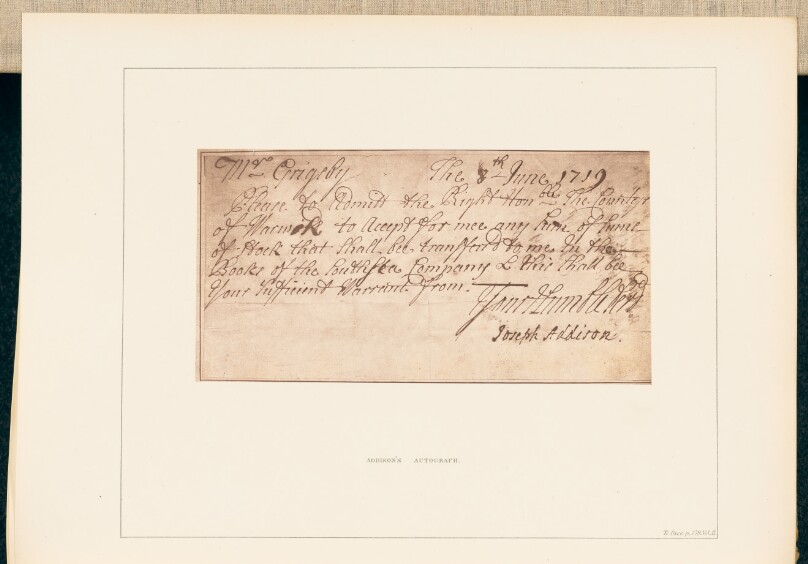 Mr Grigsby The 8th June 1719
Please to Admitt the Right Honble The Countess
of Warwick to Accept for mee any Sum or Sums
of Stock that Shall bee transferd to me In the
Books of the Southsea Company & this Shall bee
Your Sufficient Warrant From.
Your Humble Servt
Joseph Addison.
ADDISON'S AUTOGRAPH.
To face p.